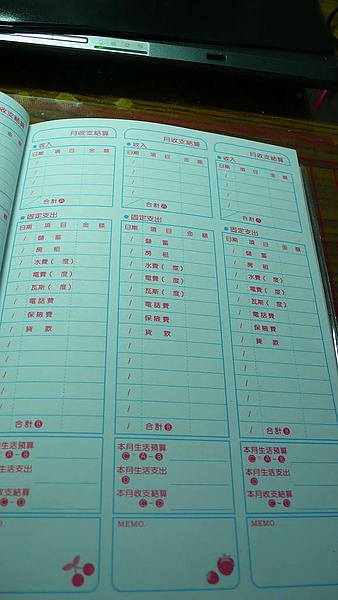 月收支結算
收入
日期 項目 金額
/
/
/
/
合計A
固定支出
日期 項目 金額
/ 儲蓄
/ 房租
水費( 度)
/ 電費( 度)
/ 瓦斯( 度)
/ 電話費
/ 保險費
/ 貸款
/
/
/
/
/
/
合計B
生活預算
C=A-B
生活支出
收支結算
C-D
月收支結算
收入
日期 項目 金額
/
/
/
合計A
固定支出
日期 項目 金額
/ 儲蓄
/ 房租
/ 水費( 度)
/ 電費( 度)
/ 瓦斯( 度)
/ 電話費
/ 保險費
/ 貸款
/
/
/
/
/
/
合計B
本月生活預算
C=A-B
本月生活支出
D
本月收支結算
C-D
MEMO.
月收支結算
收入
日期 項目 金額
/
/
/
/
合計A
固定支出
日期 項目 金額
/ 儲蓄
/ 房租
/ 水費( 度)
/ 電費( 度)
/ 瓦斯( 度)
/ 電話費
/ 保險費
/ 貸款
/
/
/
/
/
/
合計B
本月生活預算
C=A-B
本月生活支出
D
本月收支結算
C-D
MEMO.